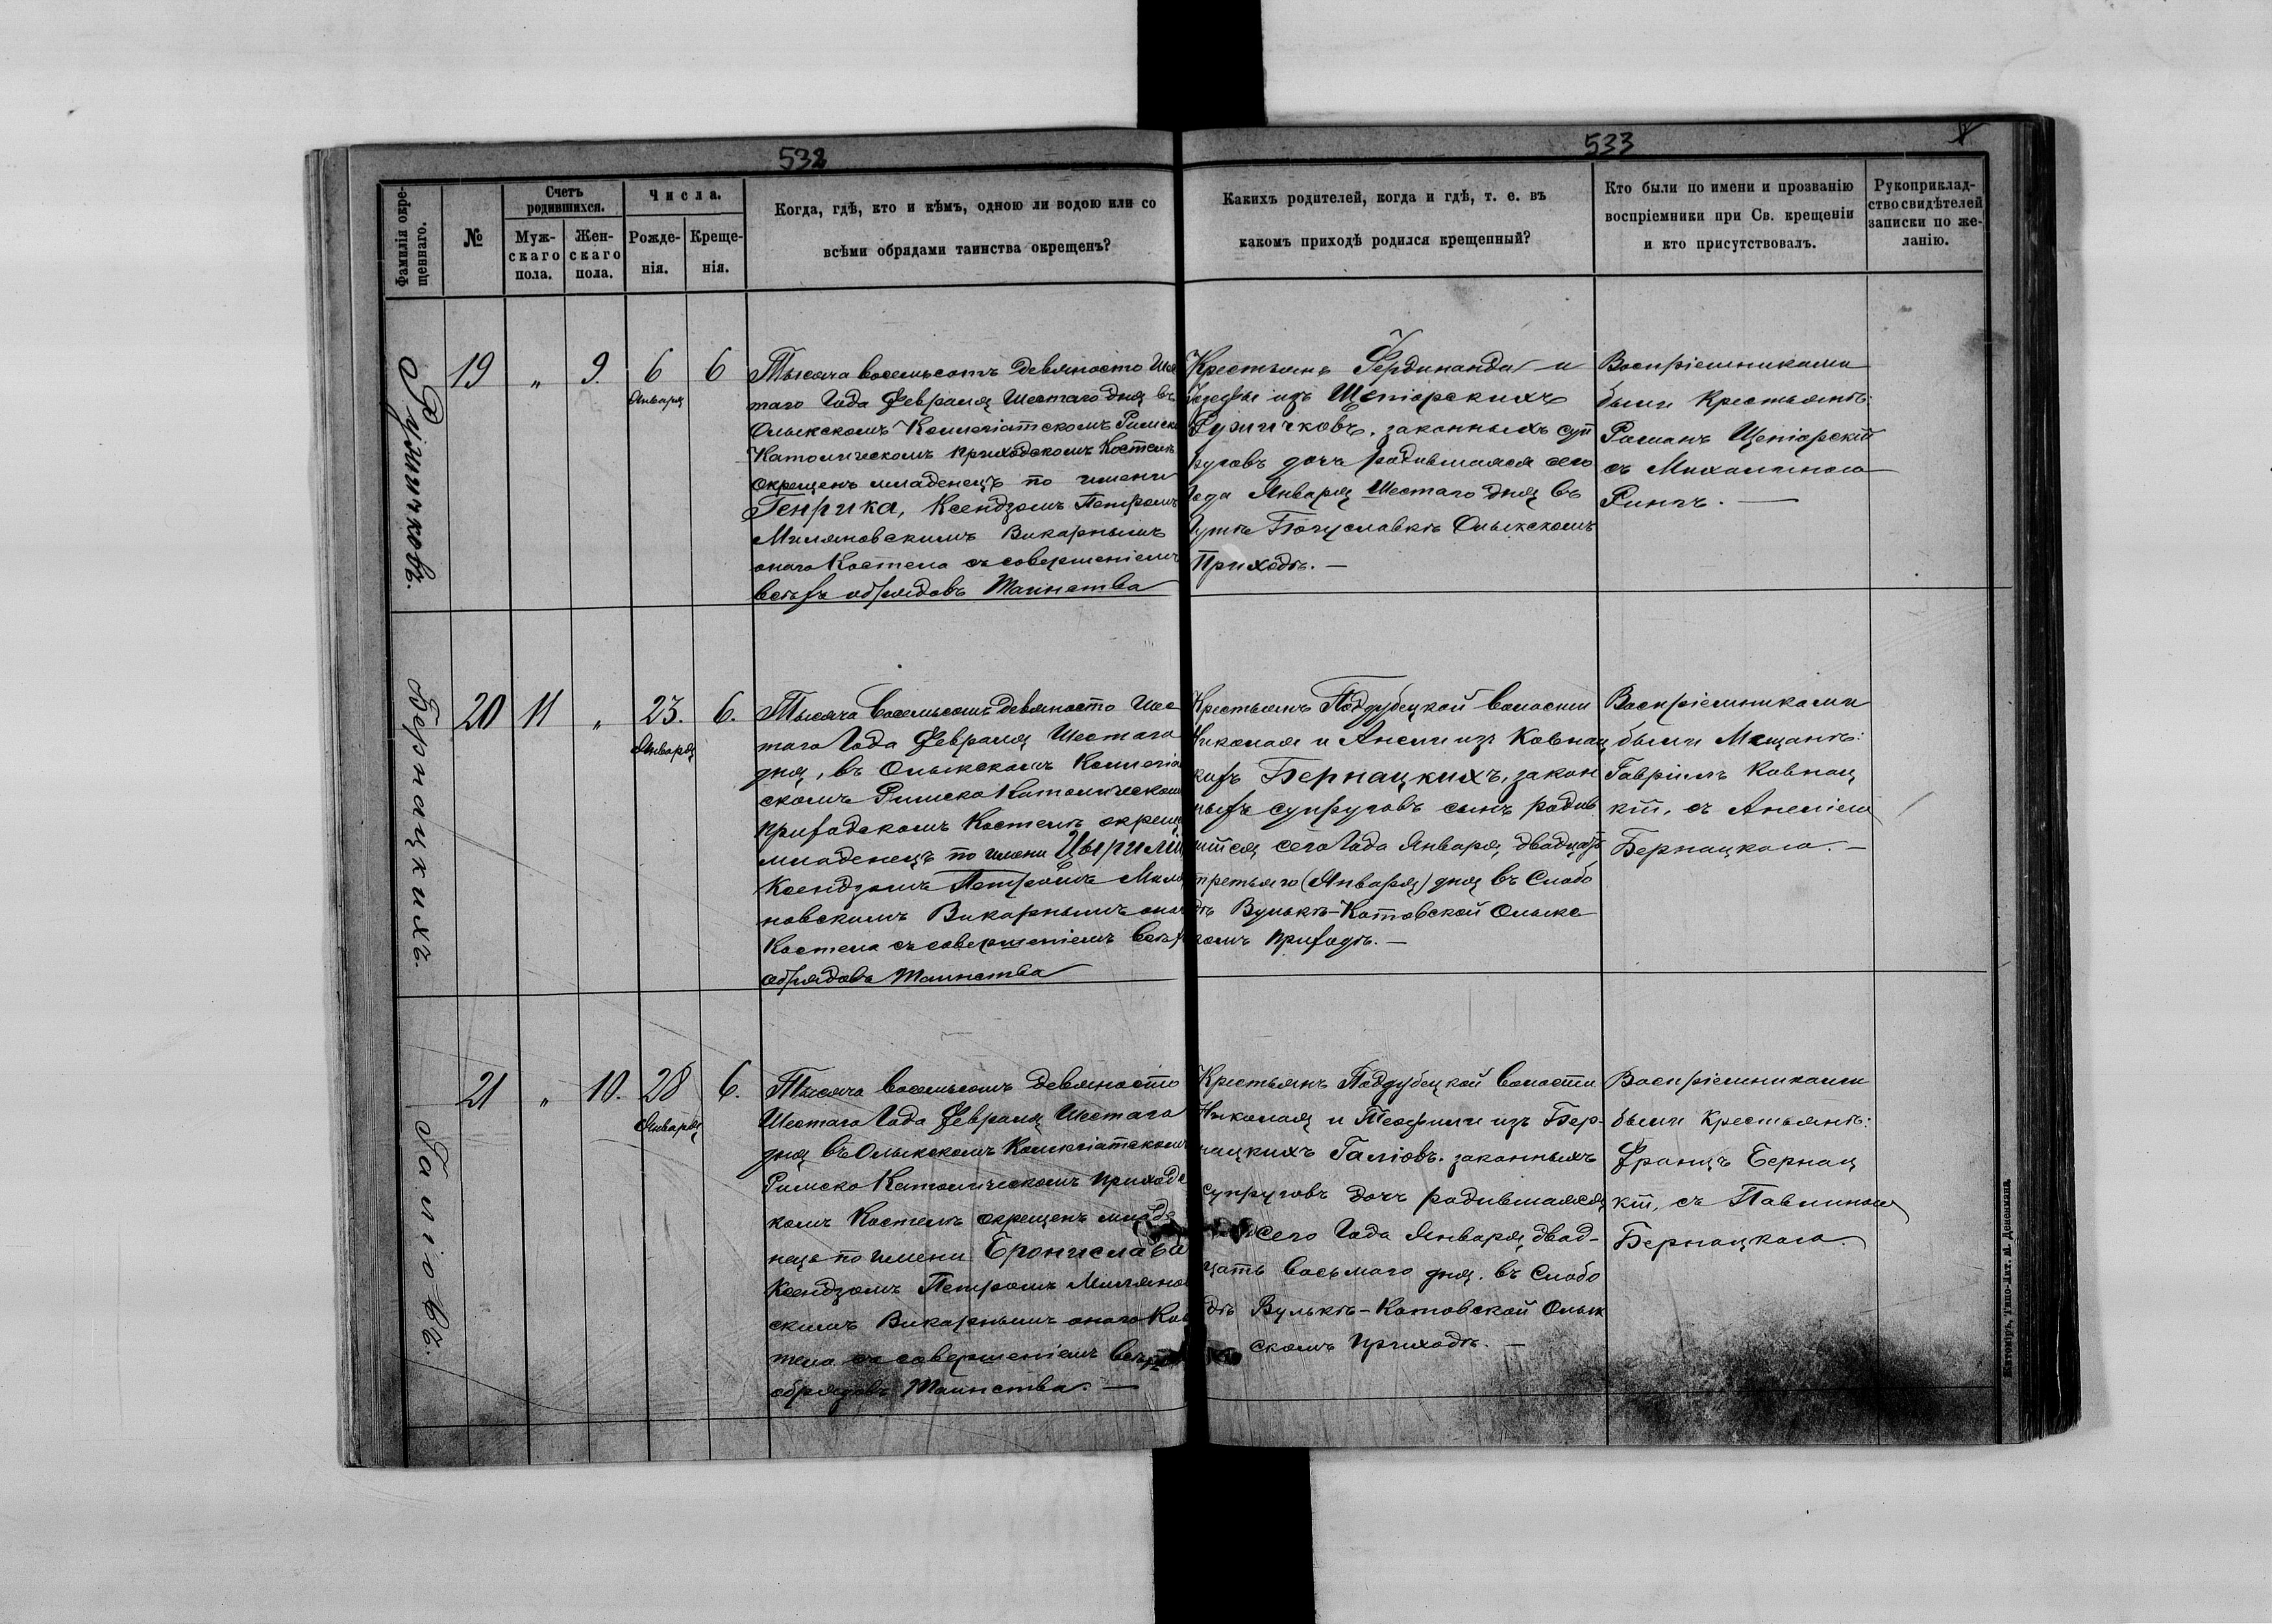 532
533
Фамилія окре-
щеннаго.
№
Счетъ
родившихся.
Муж-
скаго
пола.
Жен-
скаго
пола.
Числа.
Рожде-
нія.
Креще-
нія.
Когда, гдѣ, кто и кѣмъ, одною ли водою или со
всѣми обрядами таинства окрещенъ?
Какихъ родителей, когда и гдѣ, т. е. въ
какомъ приходѣ родился крещенный?
Кто были по имени и прозванію
воспріемники при Св. крещеніи
и кто присутствовалъ.
Рукоприклад-
ство свидѣтелей
записки по же-
ланію.
Ружичковъ.
19
„
9.
6
Января
6
Тысяча восемьсотъ девяносто Шес
таго Года Февраля Шестаго дня въ
Олыкскомъ Коллегіатскомъ Римско
Католическомъ приходскомъ Костелѣ
окрещенъ младенецъ по имени
Генрика, Ксендзомъ Петромъ
Миляновскимъ Викарнымъ
онаго Костела съ совершеніемъ
всѣхъ обрядовъ Таинства
Крестьянъ Фердинанда и
Юзефы изъ Щепіорскихъ
Ружичковъ, законныхъ суп
руговъ дочь родившаяся сего
Года Января Шестаго дня въ
Гутѣ Богуславкѣ Олыкскомъ
Приходѣ. —
Воспріемниками
были Крестьянѣ:
Романъ Щепіорскій
съ Михалиною
Рингъ. —
Бернацкихъ.
20
11
„
23.
Января
6.
Тысяча восемьсотъ девяносто Шес
таго Года Февраля Шестаго
дня, въ Олыкскомъ Коллегіа
скомъ Римско Католическомъ
приходскомъ Костелѣ окреще
младенецъ по имени Цыприлій
Ксендзомъ Петромъ Миля
новскимъ Викарнымъ онаг
Костела съ совершеніемъ всѣх
обрядовъ Таинства
Крестьянъ Поддубецкой волости
Николая и Анели изъ Ковнац
кихъ Бернацкихъ, закон
ныхъ супруговъ сынъ родив
шійся сего Года Января двадцать
третьяго (Января) дня въ Слобо
дѣ Вулькѣ-Котовской Олыкс
комъ приходѣ. —
Воспріемниками
были Мещанѣ:
Гавріилъ Ковнац
кій, съ Анеліею
Бернацкою. —
Галіовъ.
21
„
10.
28
Января
6.
Тысяча восемьсотъ девяносто
Шестаго Года Февраля Шестаго
дня въ Олыкскомъ Коллегіатскомъ
Римско Католическомъ приходс
комъ Костелѣ окрещенъ младе
нецъ по имени Бронислава
Ксендзомъ Петромъ Миляно
скимъ Викарнымъ онаго Кос
тела съ совершеніемъ всѣхъ
обрядовъ Таинства. —
Крестьянъ Поддубецкой волости
Николая и Теофили изъ Бер-
нацкихъ Галіовъ. законныхъ
супруговъ дочь родившаяся
сего Года Января двад-
цать восьмого дня. въ Слобо
дѣ Вулькѣ-Котовской Олык
скомъ приходѣ. —
Воспріемниками
были Крестьянѣ:
Францъ Бернац
кій, съ Павлиною
Бернацкою.
Житомiръ, Типо-Лит. М. Дененмана.